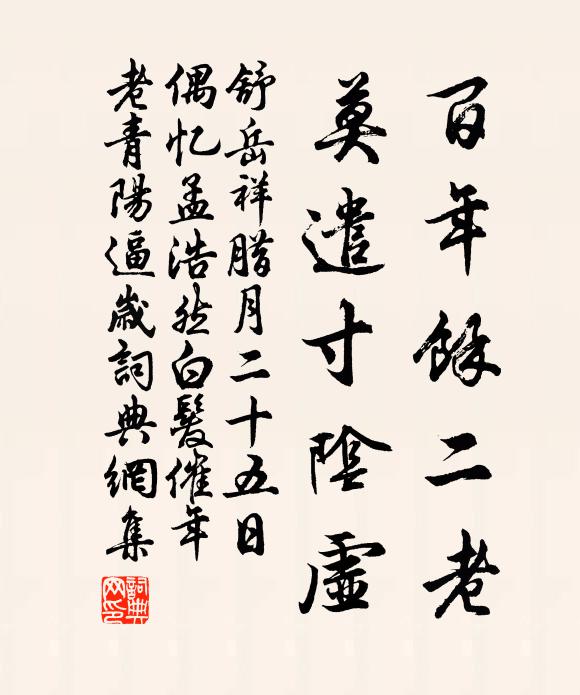 百年餘二老
莫遣寸陰虛
舒岳祥腊月二十五日
偶忆孟浩然白髮催年
老青陽逼歲詞典網集
詞典
网印